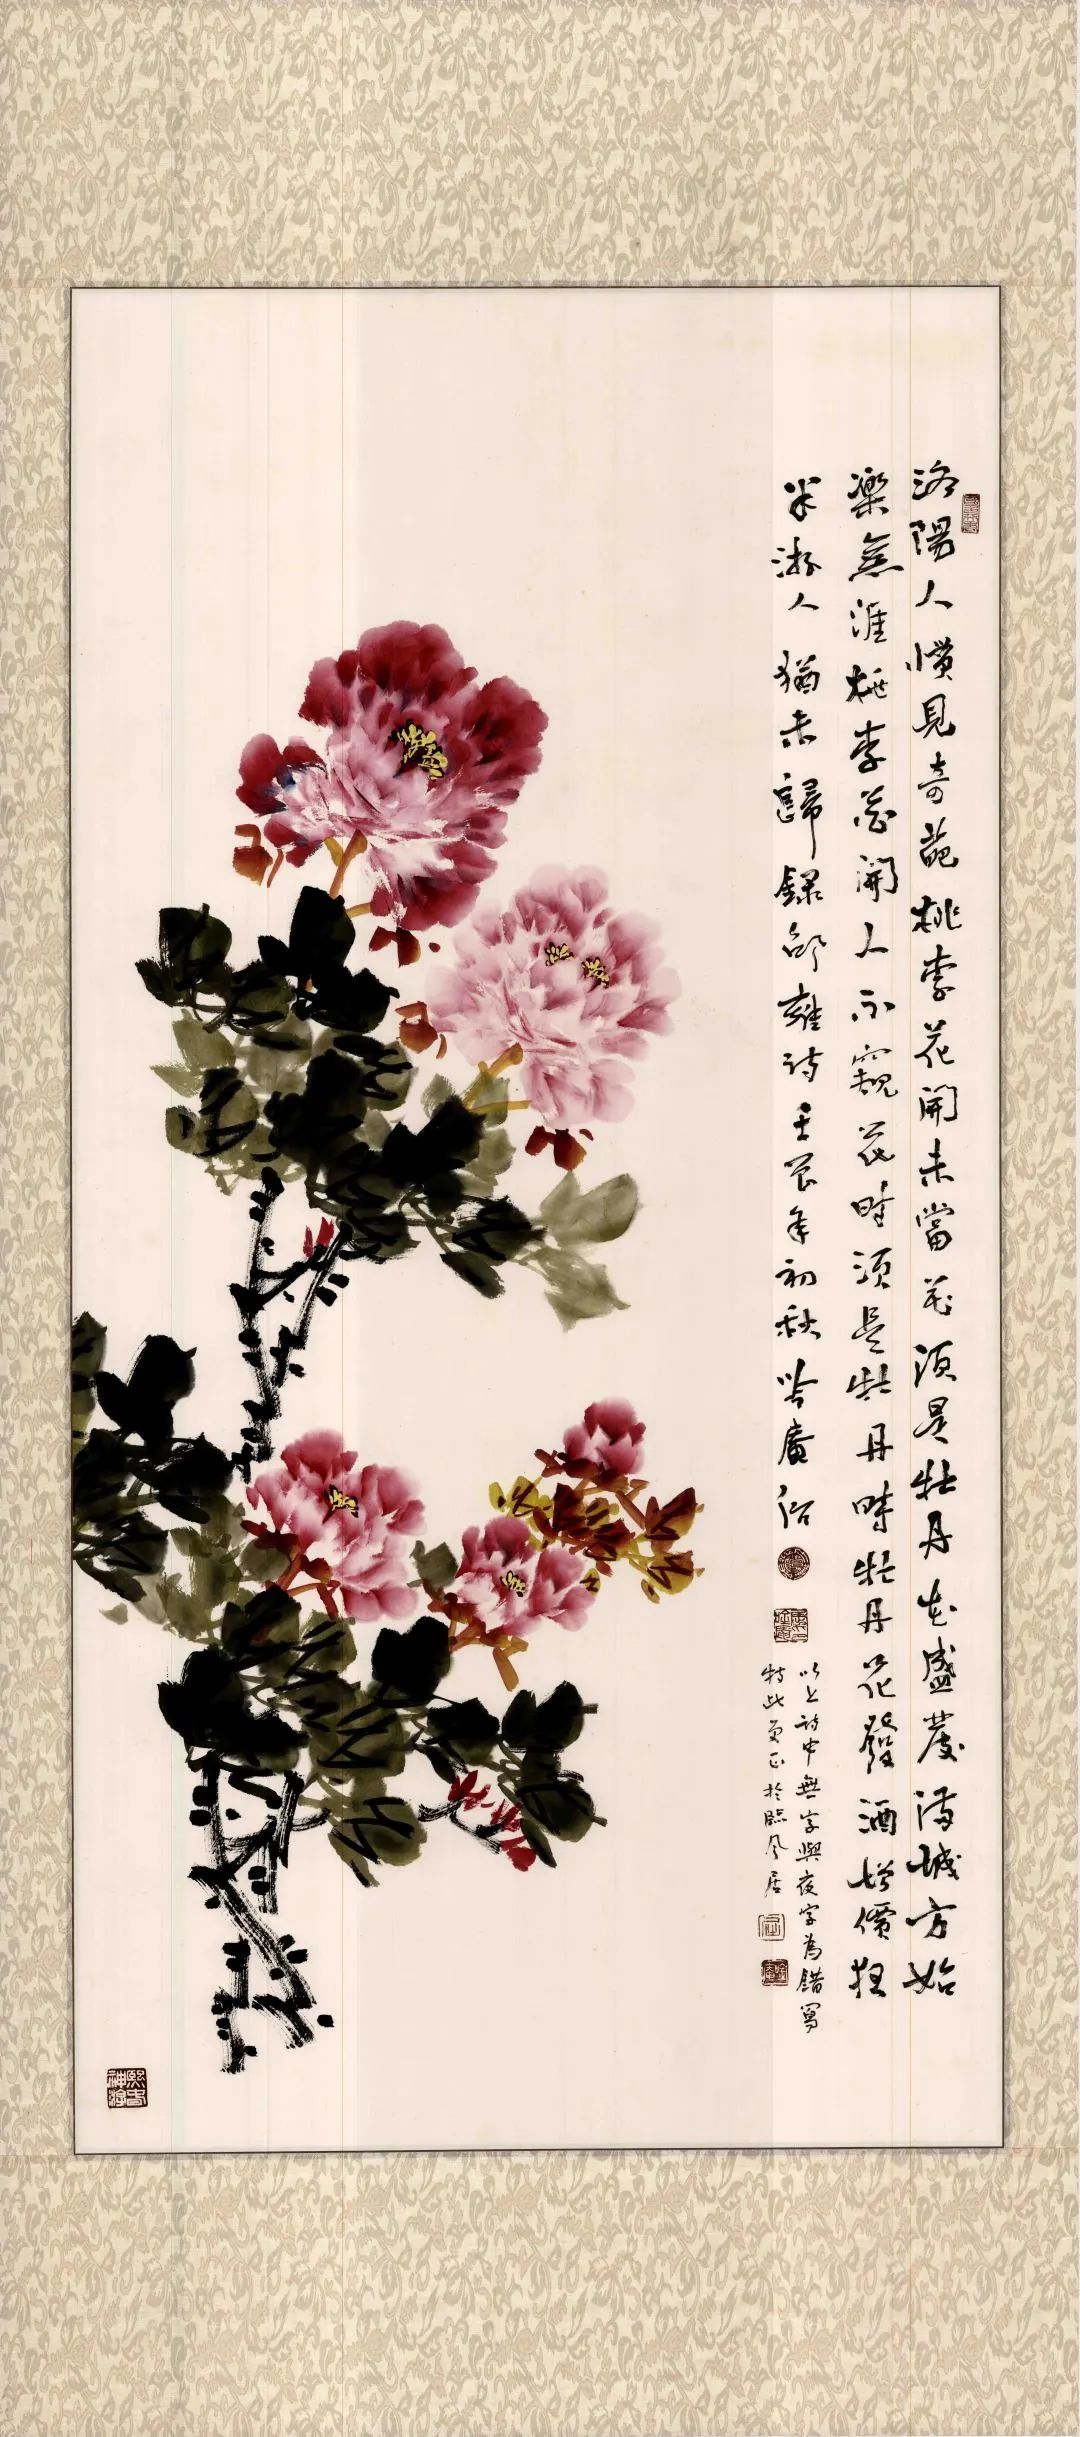 洛陽人慣見奇葩桃李花開未當花須是牡丹花盛發滿城方始
樂無涯桃李花開人不窺花時須是牡丹時牡丹花發酒增價狂
半游人猶未歸錄邵雍詩壬辰年初秋廣
以上詩中無字與夜字為錯寫
特此更正於臨風居